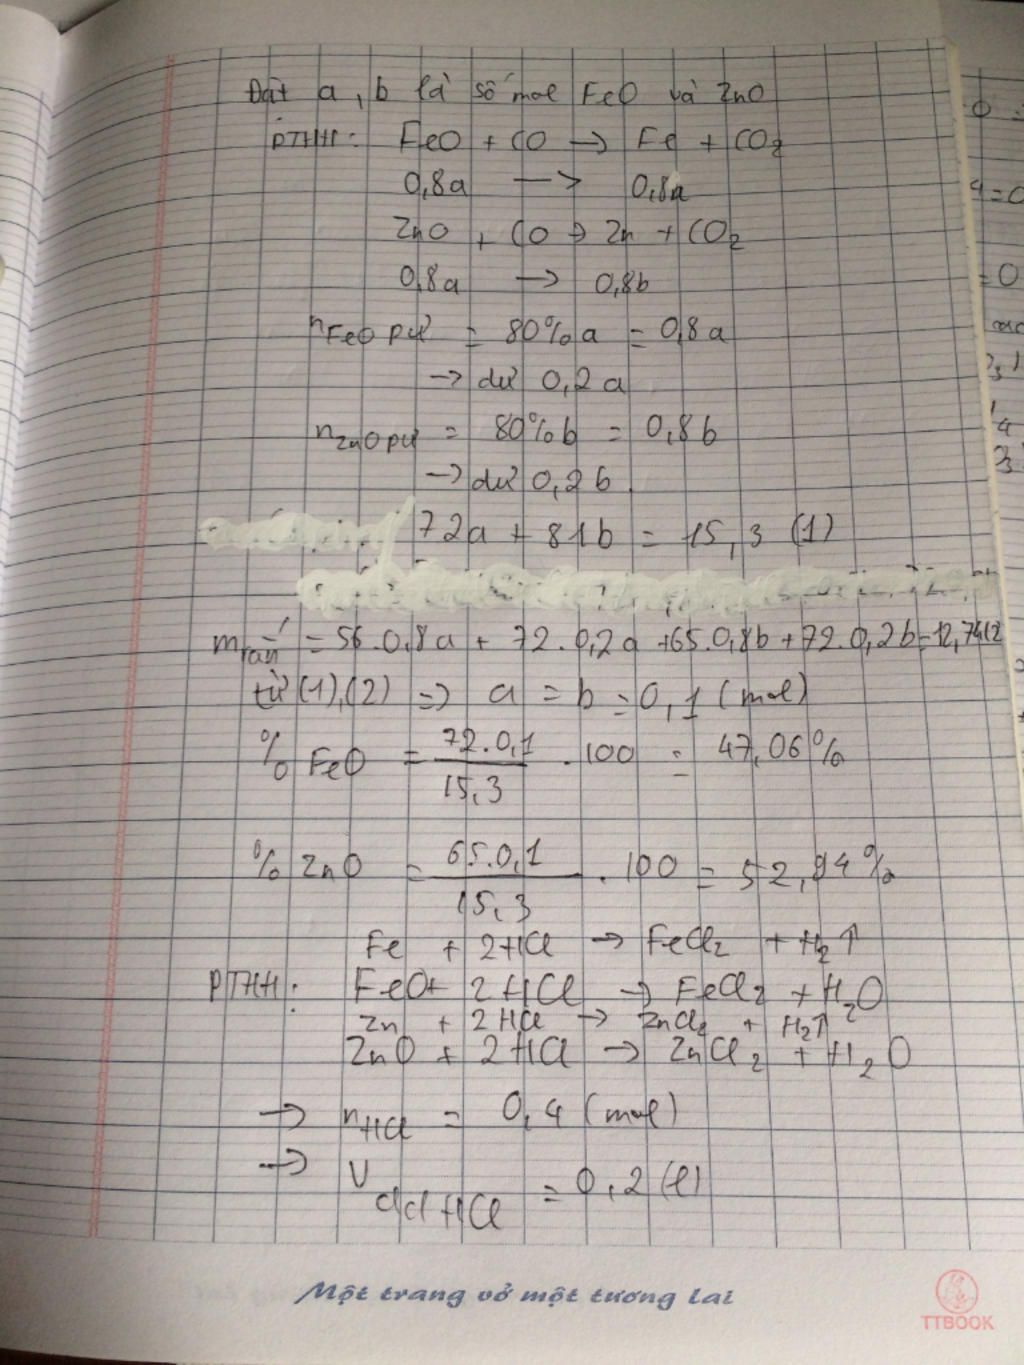 Đặt a, b là số mol FeO và ZnO
PTHH: FeO + CO → Fe + CO2
0,8a → 0,8a
ZnO + CO → Zn + CO2
0,8a → 0,8b
nFeO pứ = 80%a = 0,8a
→ dư 0,2a
nZnO pứ = 80%b = 0,8b
→ dư 0,2b
72a + 81b = 15,3 (1)
mrắn = 56.0,8a + 72.0,2a + 65.0,8b + 72.0,2b = 12,74(2
từ (1),(2) => a = b = 0,1 (mol)
% FeO = 72.0,1 / 15,3 . 100 = 47,06%
% ZnO = 65.0,1 / 15,3 . 100 = 52,94%
Fe + 2HCl → FeCl2 + H2↑
PTHH: FeO + 2HCl → FeCl2 + H2O
Zn + 2HCl → ZnCl2 + H2↑
ZnO + 2HCl → ZnCl2 + H2O
→ nHCl = 0,4 (mol)
→ Vdd HCl = 0,2 (l)
Một trang vở một tương lai
TTBOOK